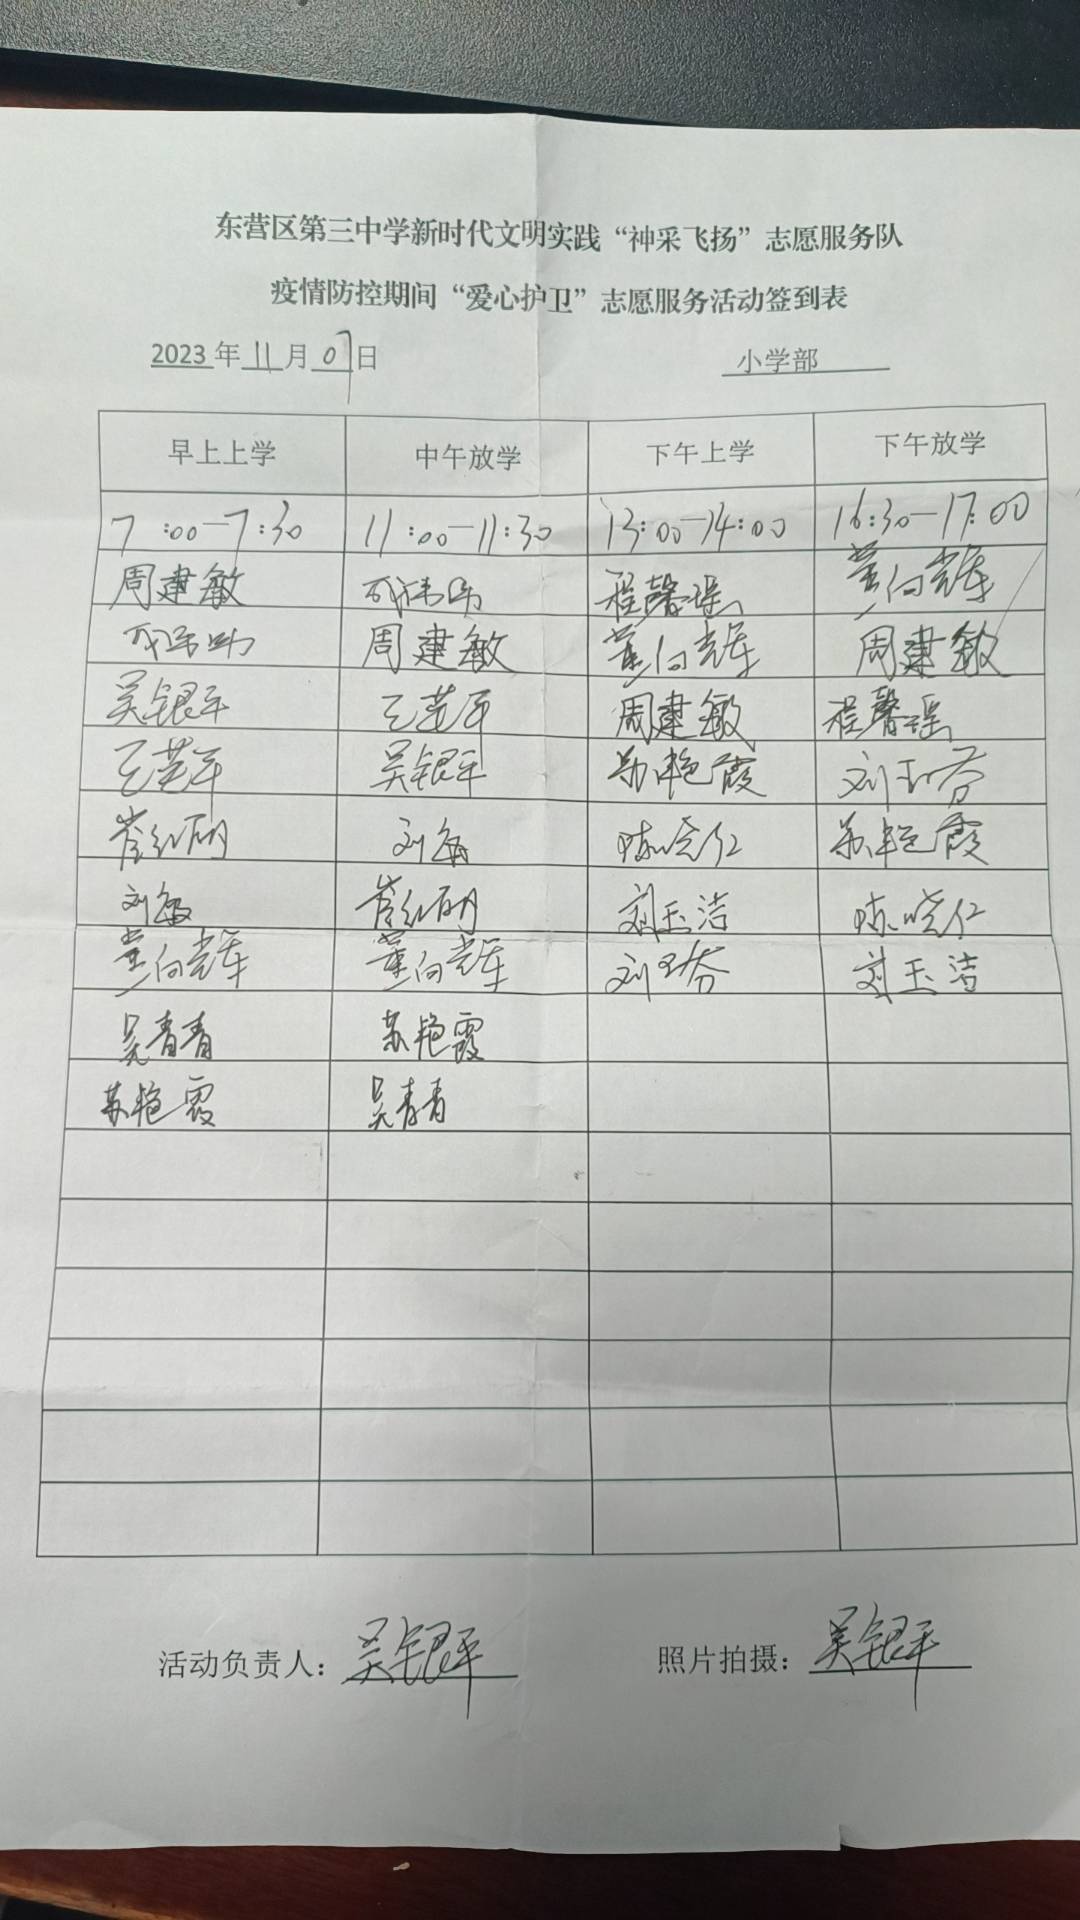 东营区第三中学新时代文明实践“神采飞扬”志愿服务队
疫情防控期间“爱心护卫”志愿服务活动签到表
2023年11月07日 小学部
早上上学 中午放学 下午上学 下午放学
7:00-7:30 11:00-11:30 13:00-14:00 16:30-17:00
周建敏 程馨瑶 董向辉
周建敏 董向辉 周建敏
吴银平 周建敏 程馨瑶
吴银平 苏艳霞 刘玉芬
崔红丽 刘敏 陈晓仁 苏艳霞
刘敏 崔红丽 刘玉洁 陈晓仁
董向辉 董向辉 刘玉芬 刘玉洁
吴青青 苏艳霞
苏艳霞 吴青青
活动负责人：吴银平 照片拍摄：吴银平